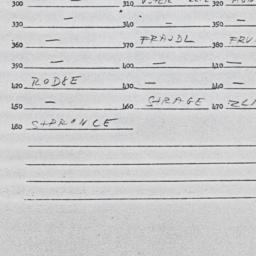 300 — 310 320
330 — 340 — 350 —
360 — 370 FRAJDL 380 FRU
390 — 400 — 410 —
420 RODSE 430 — 440 —
450 — 460 STRAGE 470
480 STPRONCE